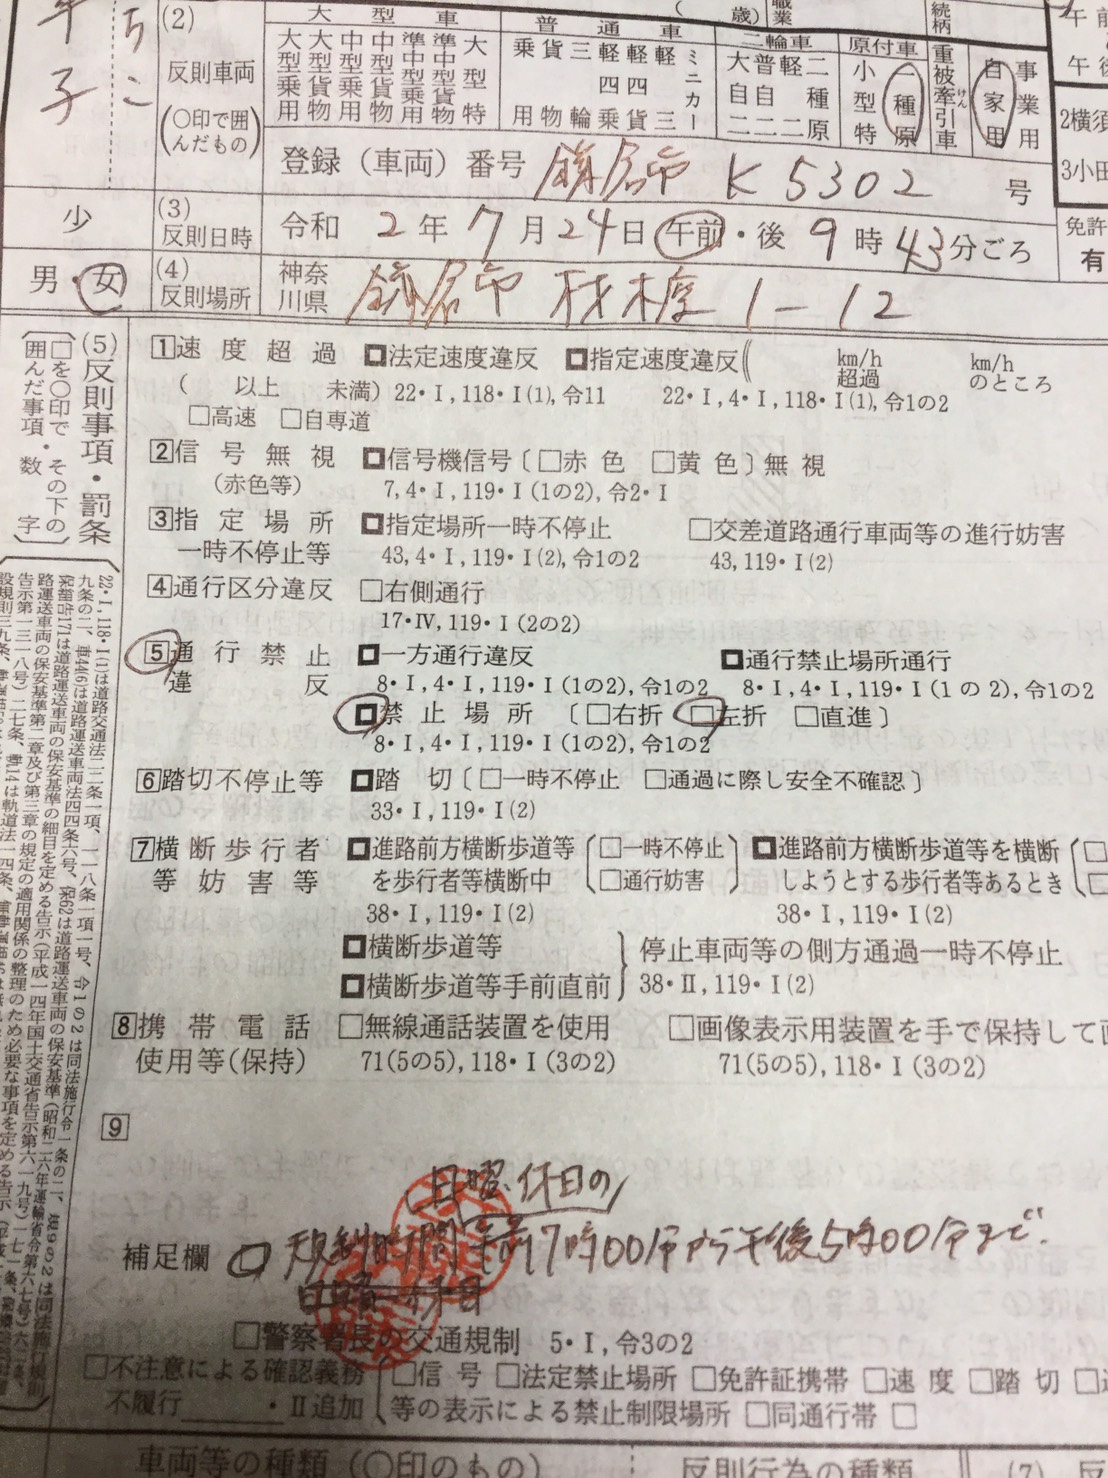 大型車 普通車 二輪車 原付車
(2)
反則車両
(〇印で囲んだもの)
大型乗用 大型貨物 中型乗用 中型貨物 準中型乗用 準中型貨物 大型特
乗用 貨物 三輪 軽四乗 軽四貨 軽三 ミニカー
大自二 普自二 軽二 二種原
小型特 一種原
重被牽引車 けん
自家用 事業用
歳) 職業 続柄
午前
午後
登録(車両)番号 鎌倉市 K 5302 号
2横須
3小田
少
(3)
反則日時
令和 2年 7月24日 午前・後 9時43分ごろ
免許
有
男・女
(4)
反則場所
神奈川県 鎌倉市 材木座 1-12
(5)反則事項・罰条
(□を〇印で囲んだ事項・その下の数字)
1速度超過 □法定速度違反 □指定速度違反 km/h超過 km/hのところ
( 以上 未満) 22・I, 118・I(1), 令11 22・I, 4・I, 118・I(1), 令1の2
□高速 □自専道
2信号無視 □信号機信号〔□赤色 □黄色〕無視
(赤色等) 7, 4・I, 119・I(1の2), 令2・I
3指定場所 □指定場所一時不停止 □交差道路通行車両等の進行妨害
一時不停止等 43, 4・I, 119・I(2), 令1の2 43, 119・I(2)
4通行区分違反 □右側通行
17・IV, 119・I(2の2)
5通行禁止 □一方通行違反 □通行禁止場所通行
違反 8・I, 4・I, 119・I(1の2), 令1の2 8・I, 4・I, 119・I(1の2), 令1の2
□禁止場所〔□右折 □左折 □直進〕
8・I, 4・I, 119・I(1の2), 令1の2
6踏切不停止等 □踏切〔□一時不停止 □通過に際し安全不確認〕
33・I, 119・I(2)
7横断歩行者 □進路前方横断歩道等 □一時不停止 □進路前方横断歩道等を横断
等妨害等 を歩行者等横断中 □通行妨害 しようとする歩行者等あるとき
38・I, 119・I(2) 38・I, 119・I(2)
□横断歩道等 停止車両等の側方通過一時不停止
□横断歩道等手前直前 38・II, 119・I(2)
8携帯電話 □無線通話装置を使用 □画像表示用装置を手で保持して画
使用等(保持) 71(5の5), 118・I(3の2) 71(5の5), 118・I(3の2)
9
日曜・休日の
補足欄 〇 規制時間 午前7時00分から午後5時00分まで.
日曜・休日
□警察署長の交通規制 5・I, 令3の2
□不注意による確認義務 □信号 □法定禁止場所 □免許証携帯 □速度 □踏切
不履行 ・II追加 等の表示による禁止制限場所 □同通行帯 □
車両等の種類(〇印のもの) 反則行為の種類 (7)